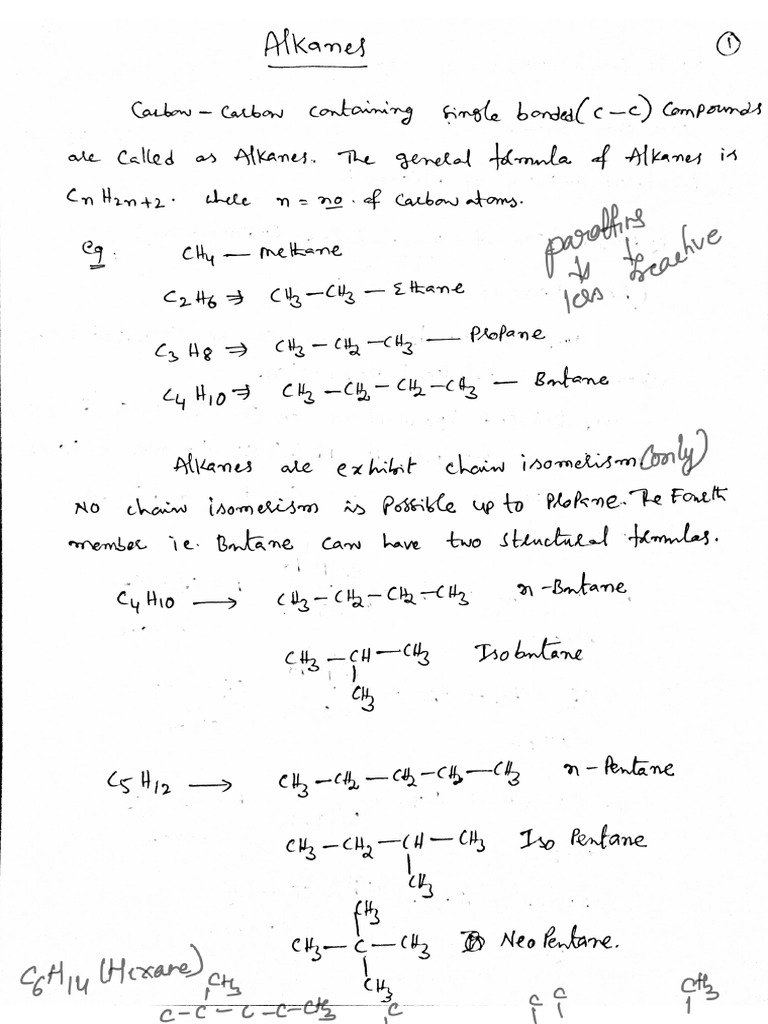 Alkanes
1
Carbon - Carbon containing single bonded (C-C) Compounds
are called as Alkanes. The general formula of Alkanes is
CnH2n+2. where n = no. of Carbon atoms.
eg. CH4 — methane
paraffins
↓ to
less reactive
C2H6 ⇒ CH3-CH3 - Ethane
C3H8 ⇒ CH3-CH2-CH3 — Propane
C4H10 ⇒ CH3-CH2-CH2-CH3 — Butane
Alkanes are exhibit chain isomerism (only)
NO chain isomerism is possible up to Propane. The Fourth
member ie. Butane can have two structural formulas.
C4H10 → CH3-CH2-CH2-CH3 n-Butane
CH3-CH-CH3 Isobutane
CH3
C5H12 → CH3-CH2-CH2-CH2-CH3 n-Pentane
CH3-CH2-CH-CH3 Iso Pentane
CH3
CH3
CH3-C-CH3 Neo Pentane.
CH3
C6H14 (Hexane)
CH3 C C C CH3
C-C-C-C-CH3